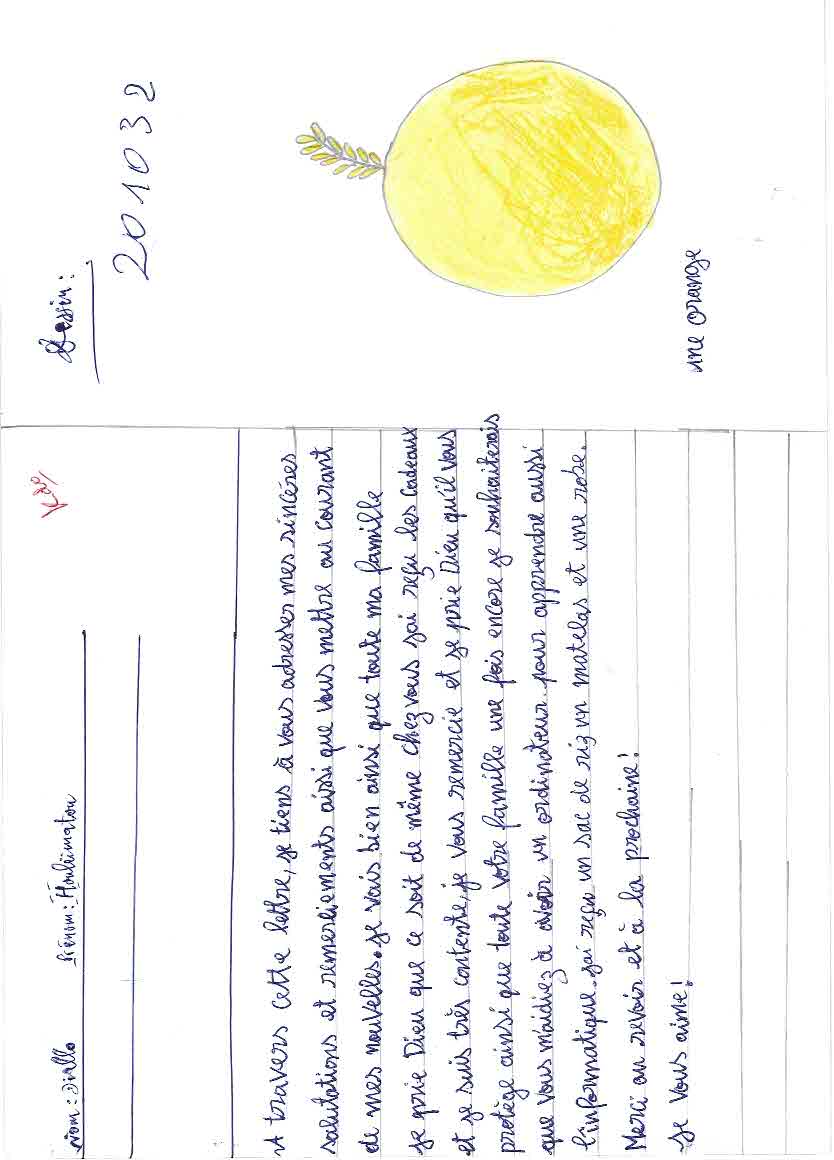 Nom: Diallo Prénom: Houlimatou
A travers cette lettre, je tiens à vous adresser mes sincères
salutations et remerciements aissi que vous mettre au courant
de mes nouvelles. je vais bien ainsi que toute ma famille
je prie Dieu que ce soit de même chez vous jai reçu les cadeaux
et je suis très contente, je vous remercie et je prie Dieu qu'il vous
protège ainsi que toute votre famille une fois encore je souhaiterais
que vous m'aidiez à avoir un ordinateur pour apprendre aussi
l'informatique. jai reçu un sac de riz un matelas et une robe.
Merci au revoir et à la prochaine!
Je vous aime!
Dessin:
201032
une orange